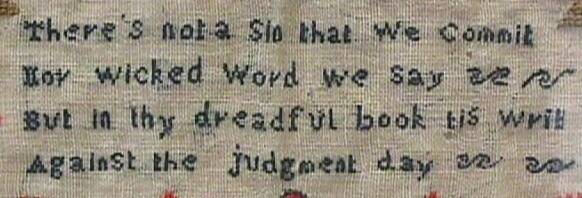 There's not a Sin that We Commit
Nor wicked Word we say
But in thy dreadful book tis Writ
Against the judgment day